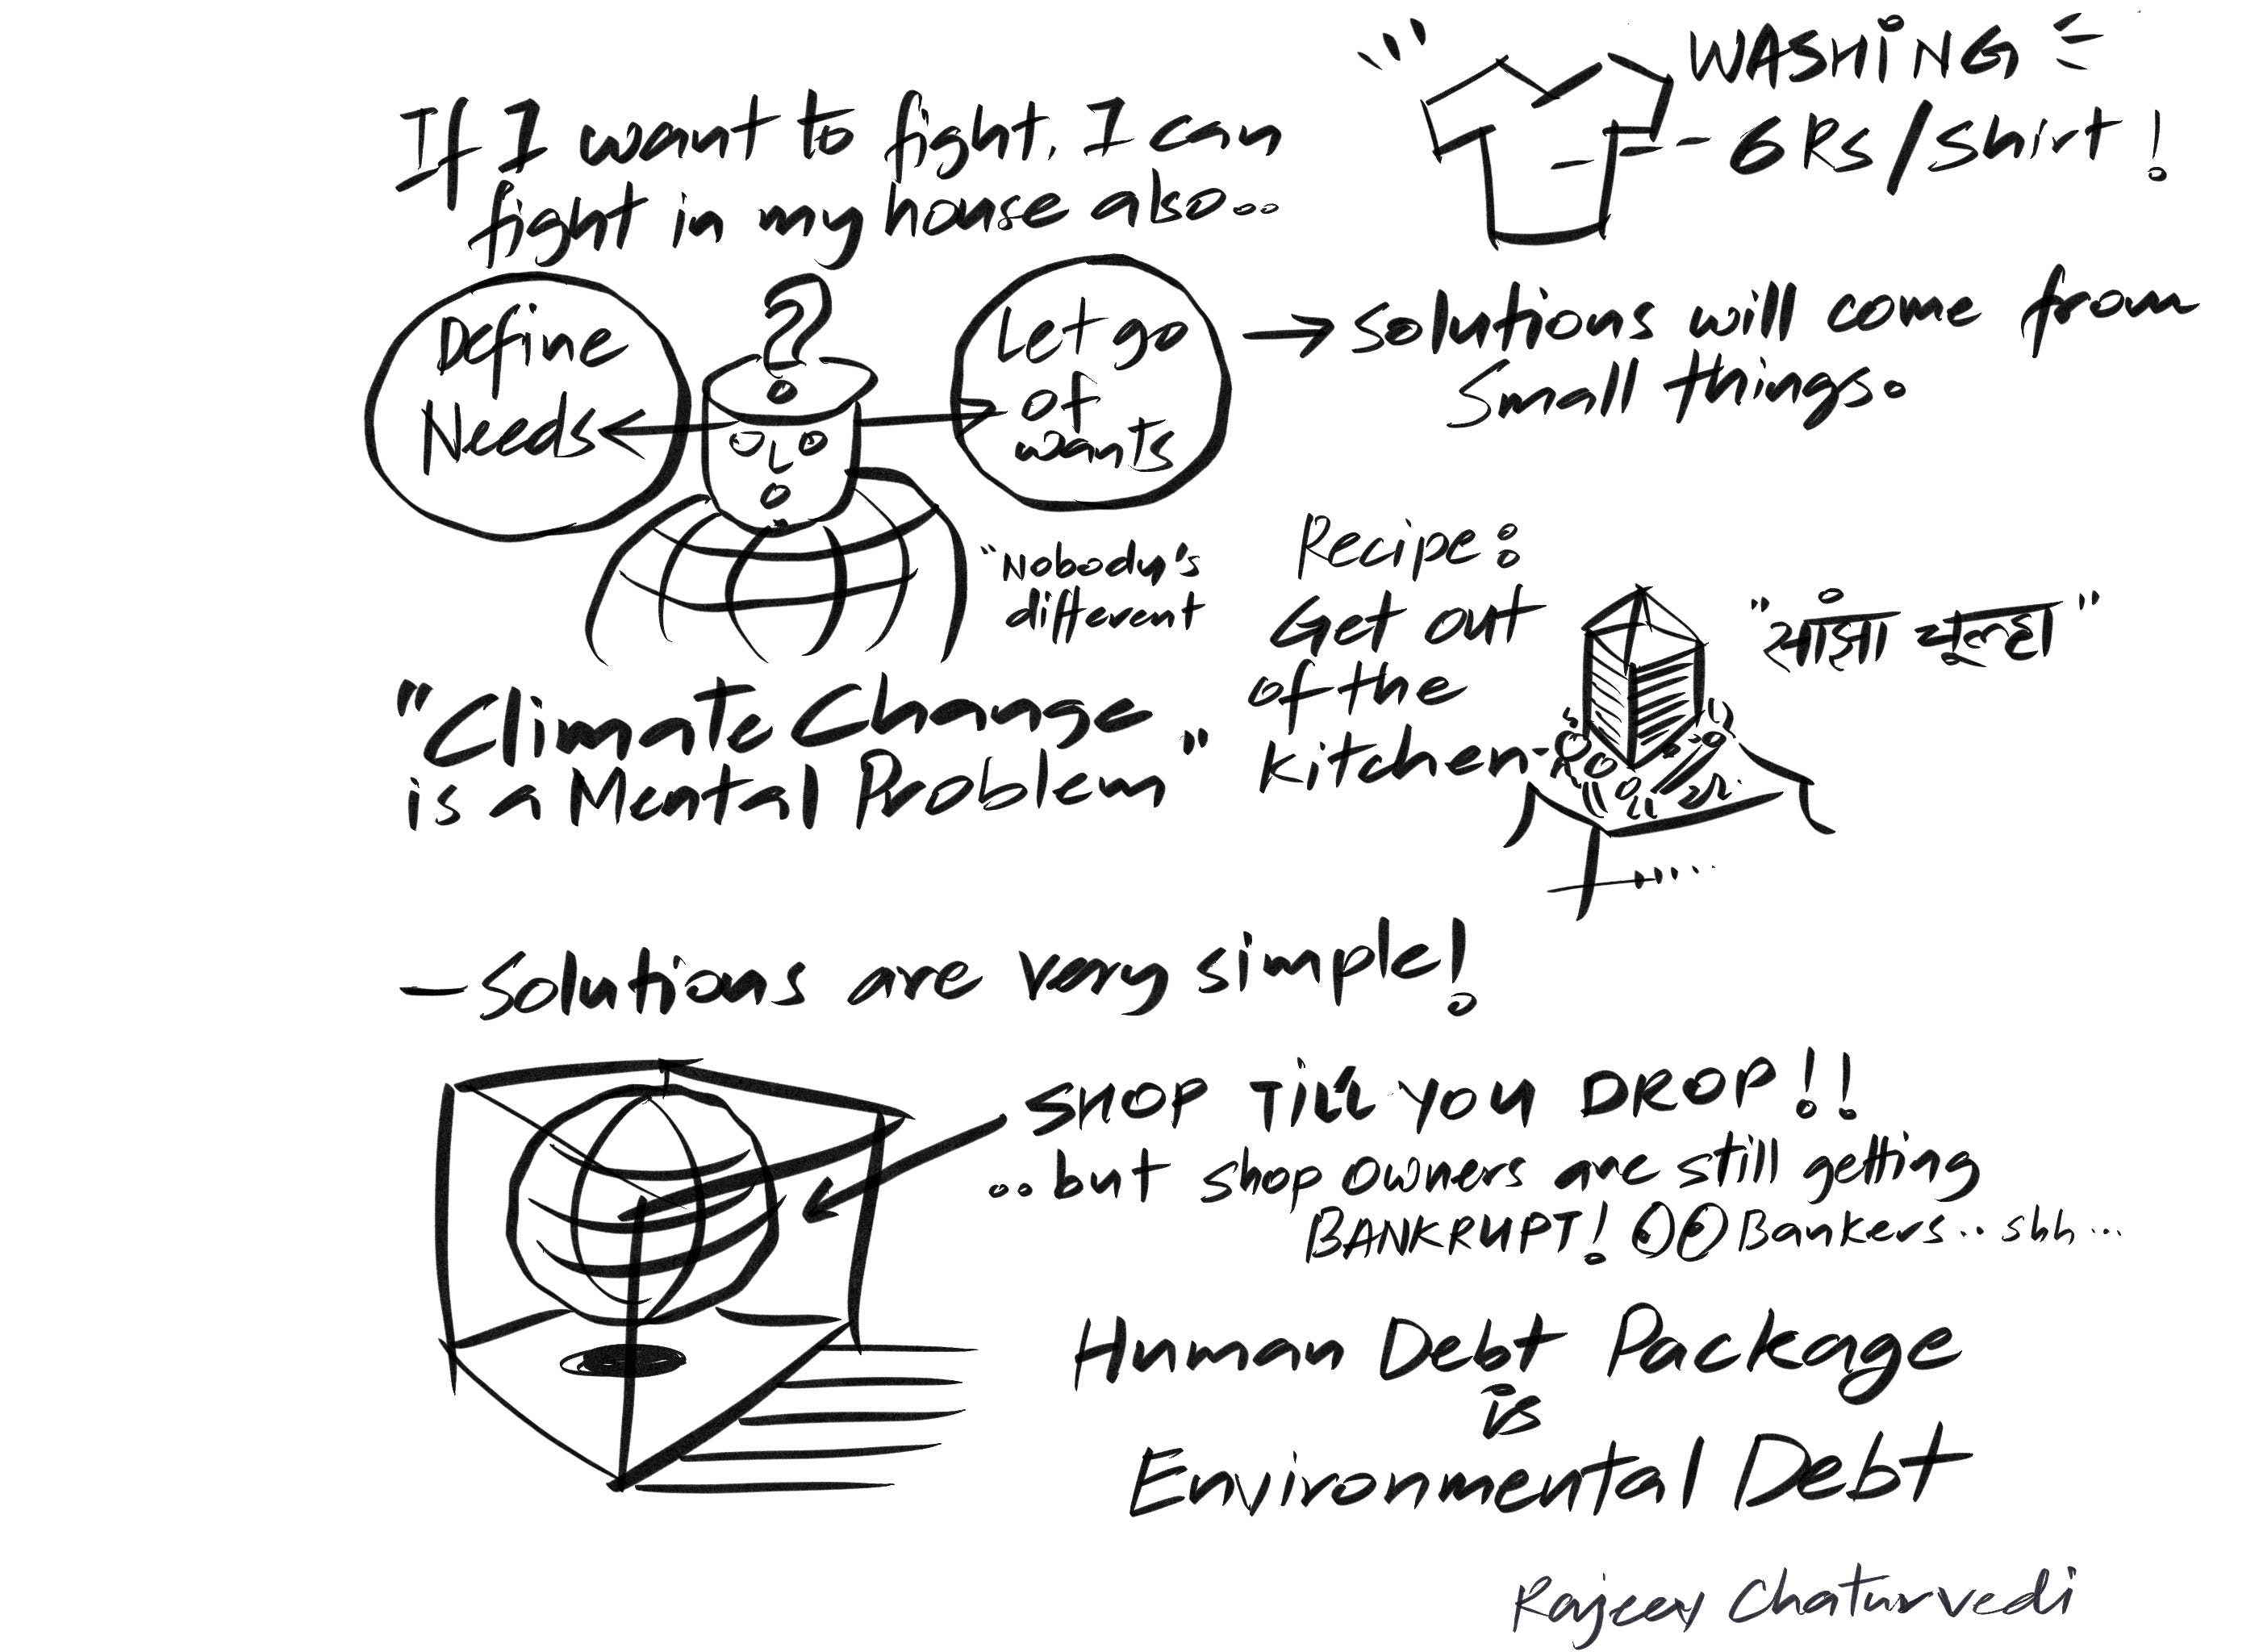 If I want to fight, I can
fight in my house also..
WASHING
- 6 Rs/Shirt!
Define
Needs
Let go
of
wants
→ Solutions will come from
Small things.
"Nobody's
different
"Climate Change
is a Mental Problem"
Recipe:
Get out
of the
kitchen-
"साँझा चूल्हा"
- Solutions are very simple!
SHOP TILL YOU DROP!!
..but shop owners are still getting
BANKRUPT! Bankers.. shh...
Human Debt Package
is
Environmental Debt
Rajeev Chaturvedi